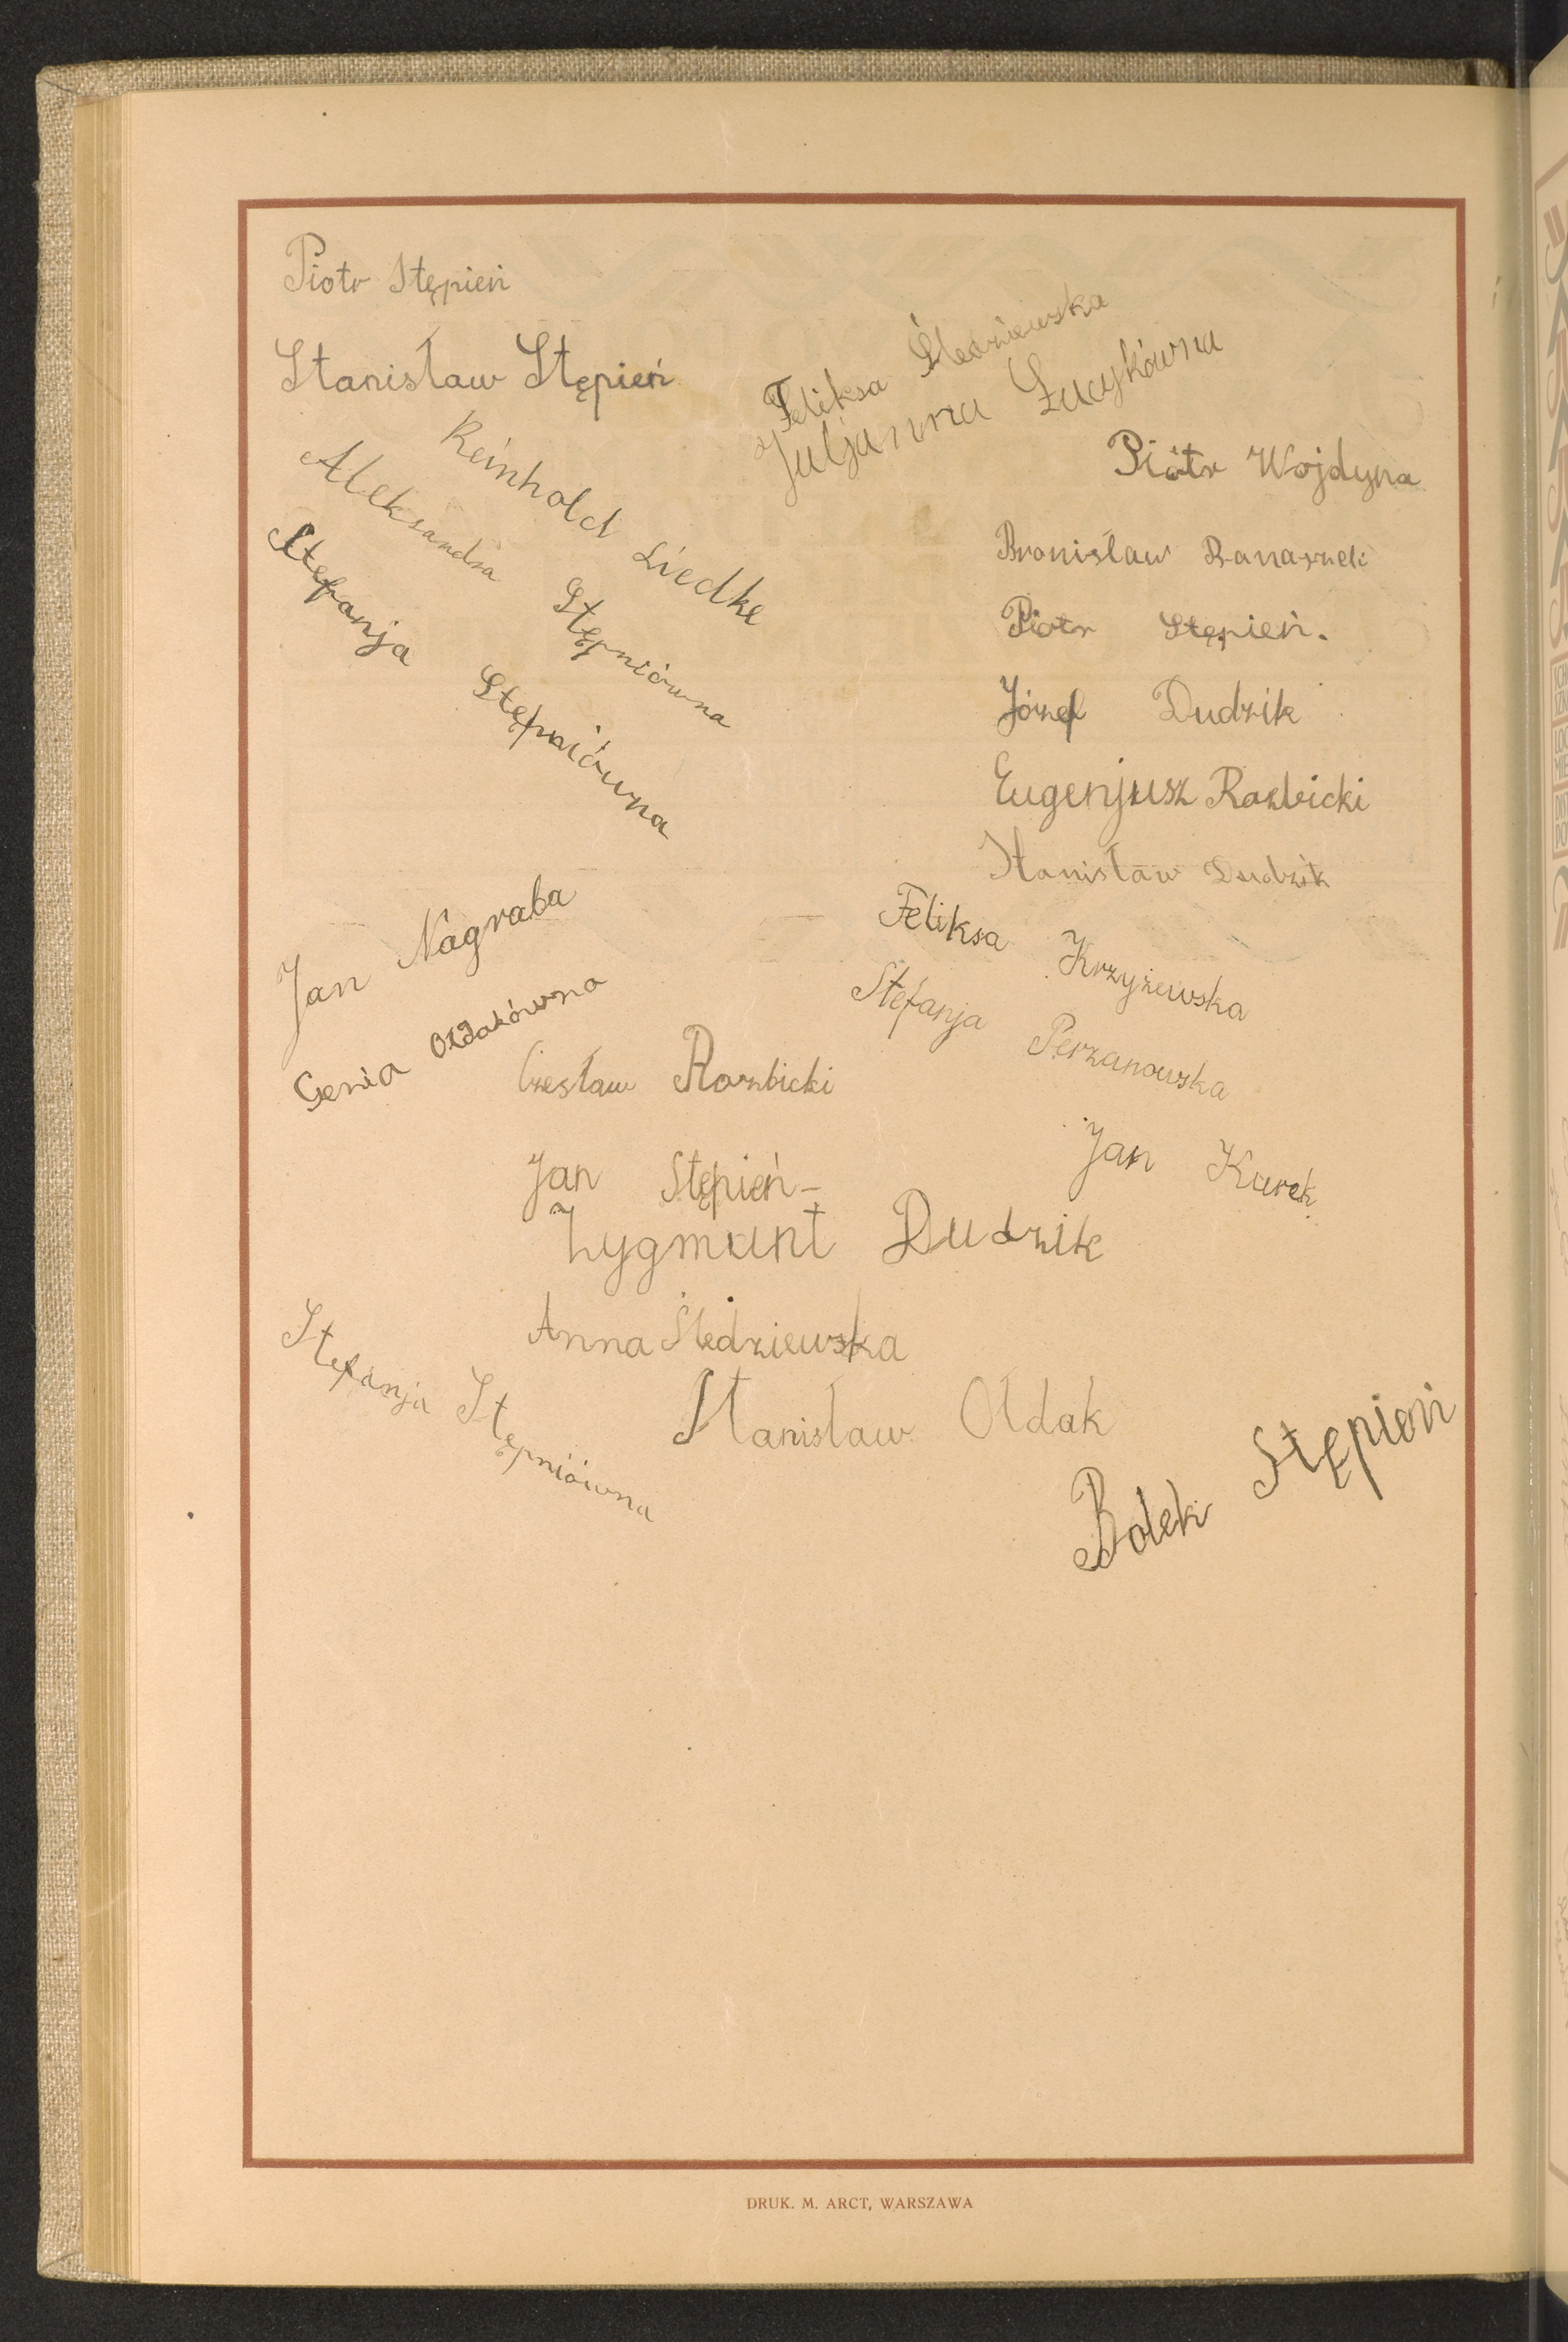 Piotr Stępień
Stanisław Stępień
Feliksa Śledziewska
Juljanna Łucykówna
Reinhold Liedke
Aleksandra Stępniówna
Stefanja Stępniówna
Piotr Wojdyna
Bronisław Banaszek
Piotr Stępień.
Józef Dudzik
Eugenjusz Rozbicki
Stanisław Dudzik
Jan Nagraba
Genia Ołdakówna
Feliksa Krzyżewska
Stefanja Perzanowska
Czesław Rozbicki
Jan Kurek
Jan Stępień
Zygmunt Dudzik
Anna Śledziewska
Stefanja Stępniówna
Stanisław Ołdak
Bolek Stępień
DRUK. M. ARCT, WARSZAWA